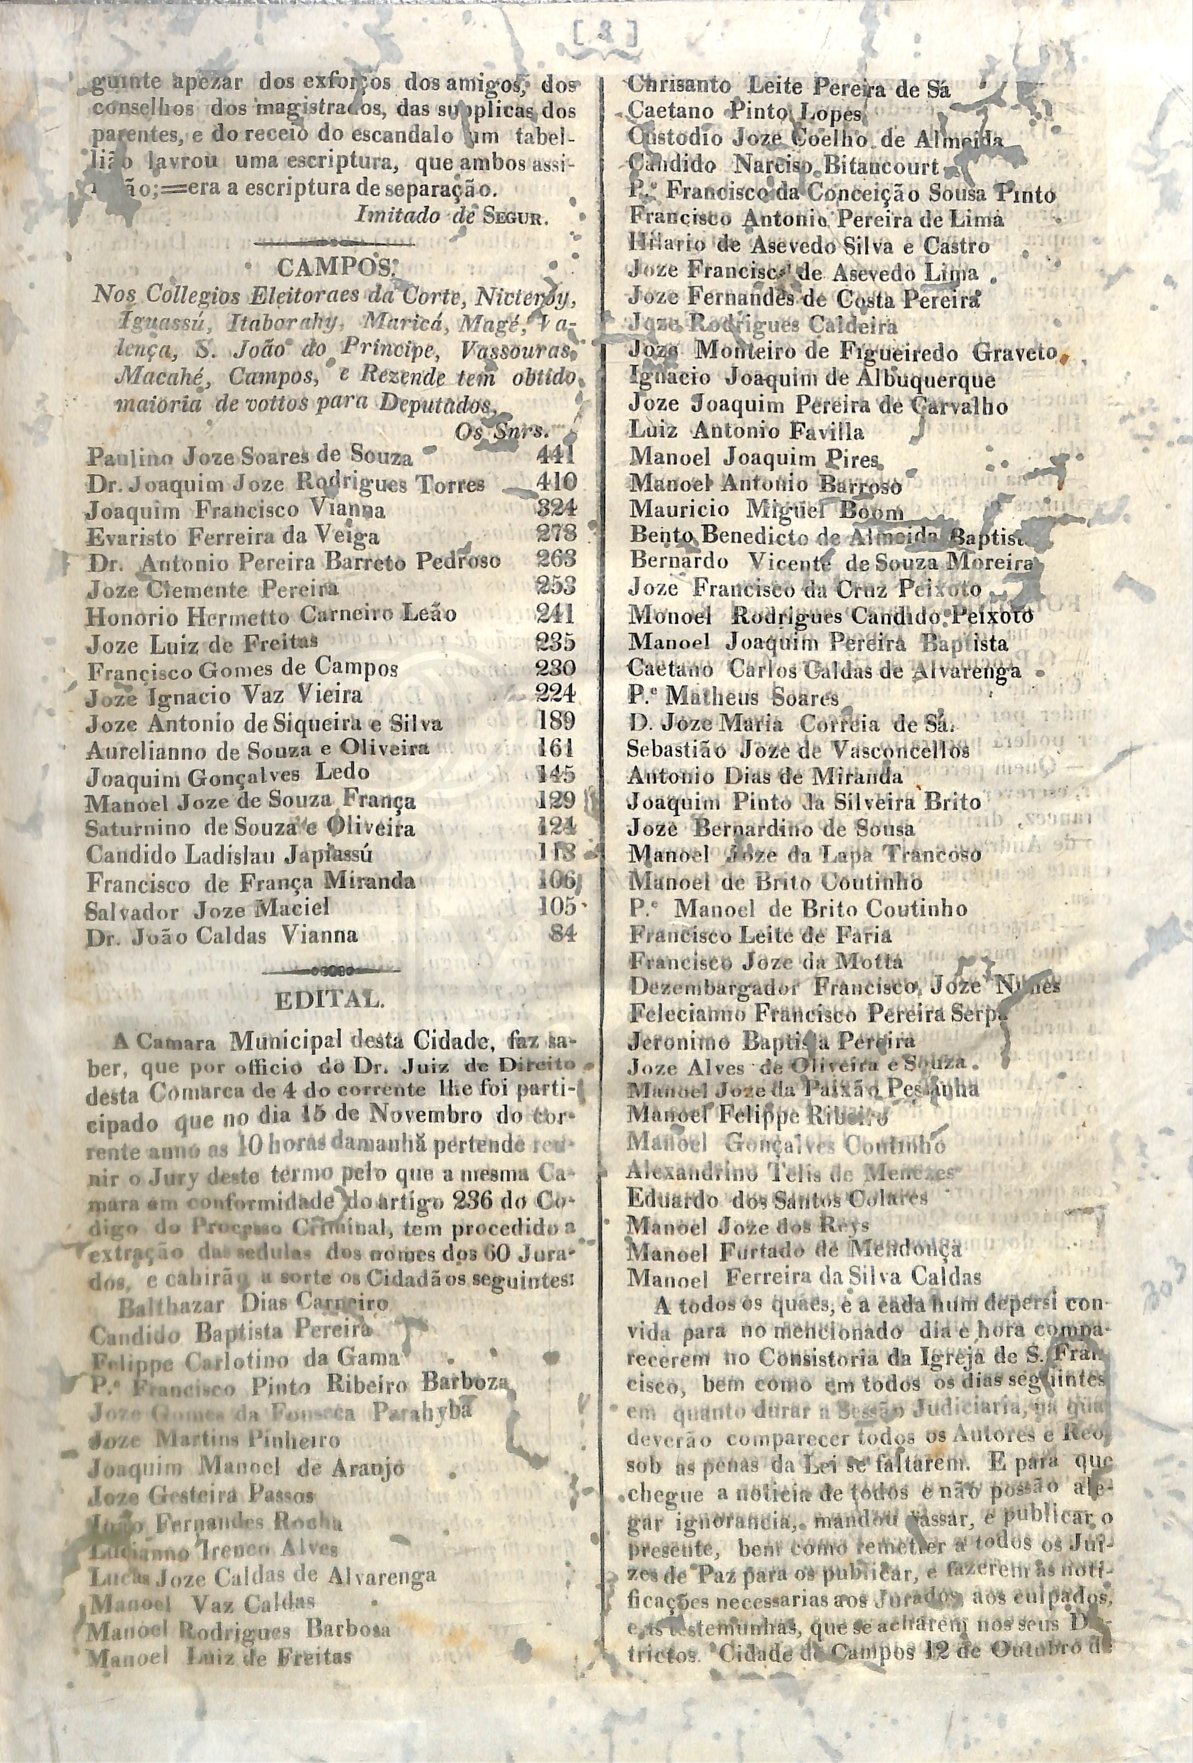 [ 3 ]
guinte apezar dos exforços dos amigos, dos
conselhos dos magistrados, das supplicas dos
parentes, e do receio do escandalo um tabel-
lião lavrou uma escriptura, que ambos assi-
não;=era a escriptura de separação.
Imitado de SEGUR.
CAMPOS.
Nos Collegios Eleitoraes da Corte, Nicteroy,
Iguassú, Itaborahy, Maricá, Magé, Va-
lença, S. João do Principe, Vassouras,
Macahé, Campos, e Rezende tem obtido
maioria de vottos para Deputados.
Os Snrs.
Paulino Joze Soares de Souza 441
Dr. Joaquim Joze Rodrigues Torres 410
Joaquim Francisco Vianna 324
Evaristo Ferreira da Veiga 278
Dr. Antonio Pereira Barreto Pedroso 263
Joze Clemente Pereira 253
Honorio Hermetto Carneiro Leão 241
Joze Luiz de Freitas 235
Francisco Gomes de Campos 230
Joze Ignacio Vaz Vieira 224
Joze Antonio de Siqueira e Silva 189
Aurelianno de Souza e Oliveira 161
Joaquim Gonçalves Ledo 145
Manoel Joze de Souza França 129
Saturnino de Souza e Oliveira 124
Candido Ladislau Japiassú 113
Francisco de França Miranda 106
Salvador Joze Maciel 105
Dr. João Caldas Vianna 84
EDITAL.
A Camara Municipal desta Cidade, faz sa-
ber, que por officio do Dr. Juiz de Direito
desta Comarca de 4 do corrente lhe foi parti-
cipado que no dia 15 de Novembro do cor-
rente anno as 10 horas da manhã pertende reu-
nir o Jury deste termo pelo que a mesma Ca-
mara em conformidade do artigo 236 do Co-
digo do Processo Criminal, tem procedido a
extração das sedulas dos nomes dos 60 Jura-
dos, e cahirão a sorte os Cidadãos seguintes:
Balthazar Dias Carneiro
Candido Baptista Pereira
Felippe Carlotino da Gama
P.e Francisco Pinto Ribeiro Barboza
Joze Gomes da Fonseca Parahyba
Joze Martins Pinheiro
Joaquim Manoel de Aranjo
Joze Gesteira Passos
João Fernandes Rocha
Lucianno Ireneo Alves
Lucas Joze Caldas de Alvarenga
Manoel Vaz Caldas
Manoel Rodrigues Barbosa
Manoel Luiz de Freitas
Chrisanto Leite Pereira de Sá
Caetano Pinto Lopes
Custodio Joze Coelho de Almeida
Candido Narciso Bitancourt
P.e Francisco da Conceição Sousa Pinto
Francisco Antonio Pereira de Lima
Hilario de Asevedo Silva e Castro
Joze Francisco de Asevedo Lima
Joze Fernandes de Costa Pereira
Joze Rodrigues Caldeira
Joze Monteiro de Figueiredo Graveto
Ignacio Joaquim de Albuquerque
Joze Joaquim Pereira de Carvalho
Luiz Antonio Favilla
Manoel Joaquim Pires
Manoel Antonio Barroso
Mauricio Miguel Boom
Bento Benedicto de Almeida Baptista
Bernardo Vicente de Souza Moreira
Joze Francisco da Cruz Peixoto
Monoel Rodrigues Candido Peixoto
Manoel Joaquim Pereira Baptista
Caetano Carlos Caldas de Alvarenga
P.e Matheus Soares
D. Joze Maria Correia de Sá.
Sebastião Joze de Vasconcellos
Antonio Dias de Miranda
Joaquim Pinto da Silveira Brito
Joze Bernardino de Sousa
Manoel Joze da Lapa Trancoso
Manoel de Brito Coutinho
P.e Manoel de Brito Coutinho
Francisco Leite de Faria
Francisco Joze da Motta
Dezembargador Francisco Joze Nunes
Felecianno Francisco Pereira Serpa
Jeronimo Baptista Pereira
Joze Alves de Oliveira e Souza
Manoel Joze da Paixão Pesanha
Manoel Felippe Ribeiro
Manoel Gonçalves Coutinho
Alexandrino Telis de Menezes
Eduardo dos Santos Colares
Manoel Joze dos Reys
Manoel Furtado de Mendonça
Manoel Ferreira da Silva Caldas
A todos os quaes, e a cada hum depersi con-
vida para no mencionado dia e hora compa-
recerem no Consistoria da Igreja de S. Fran-
cisco, bem como em todos os dias seguintes
em quanto durar a Sessão Judiciaria, na qual
deverão comparecer todos os Autores e Reos
sob as penas da Lei se faltarem. E para que
chegue a noticia de todos e não possão ale-
gar ignorancia, mandou passar, e publicar o
presente, bem como remetter a todos os Jui-
zes de Paz para os publicar, e fazerem as noti-
ficações necessarias aos Jurados, aos culpados,
e as testemunhas, que se acharem nos seus Dis-
trictos. Cidade de Campos 12 de Outubro de
303